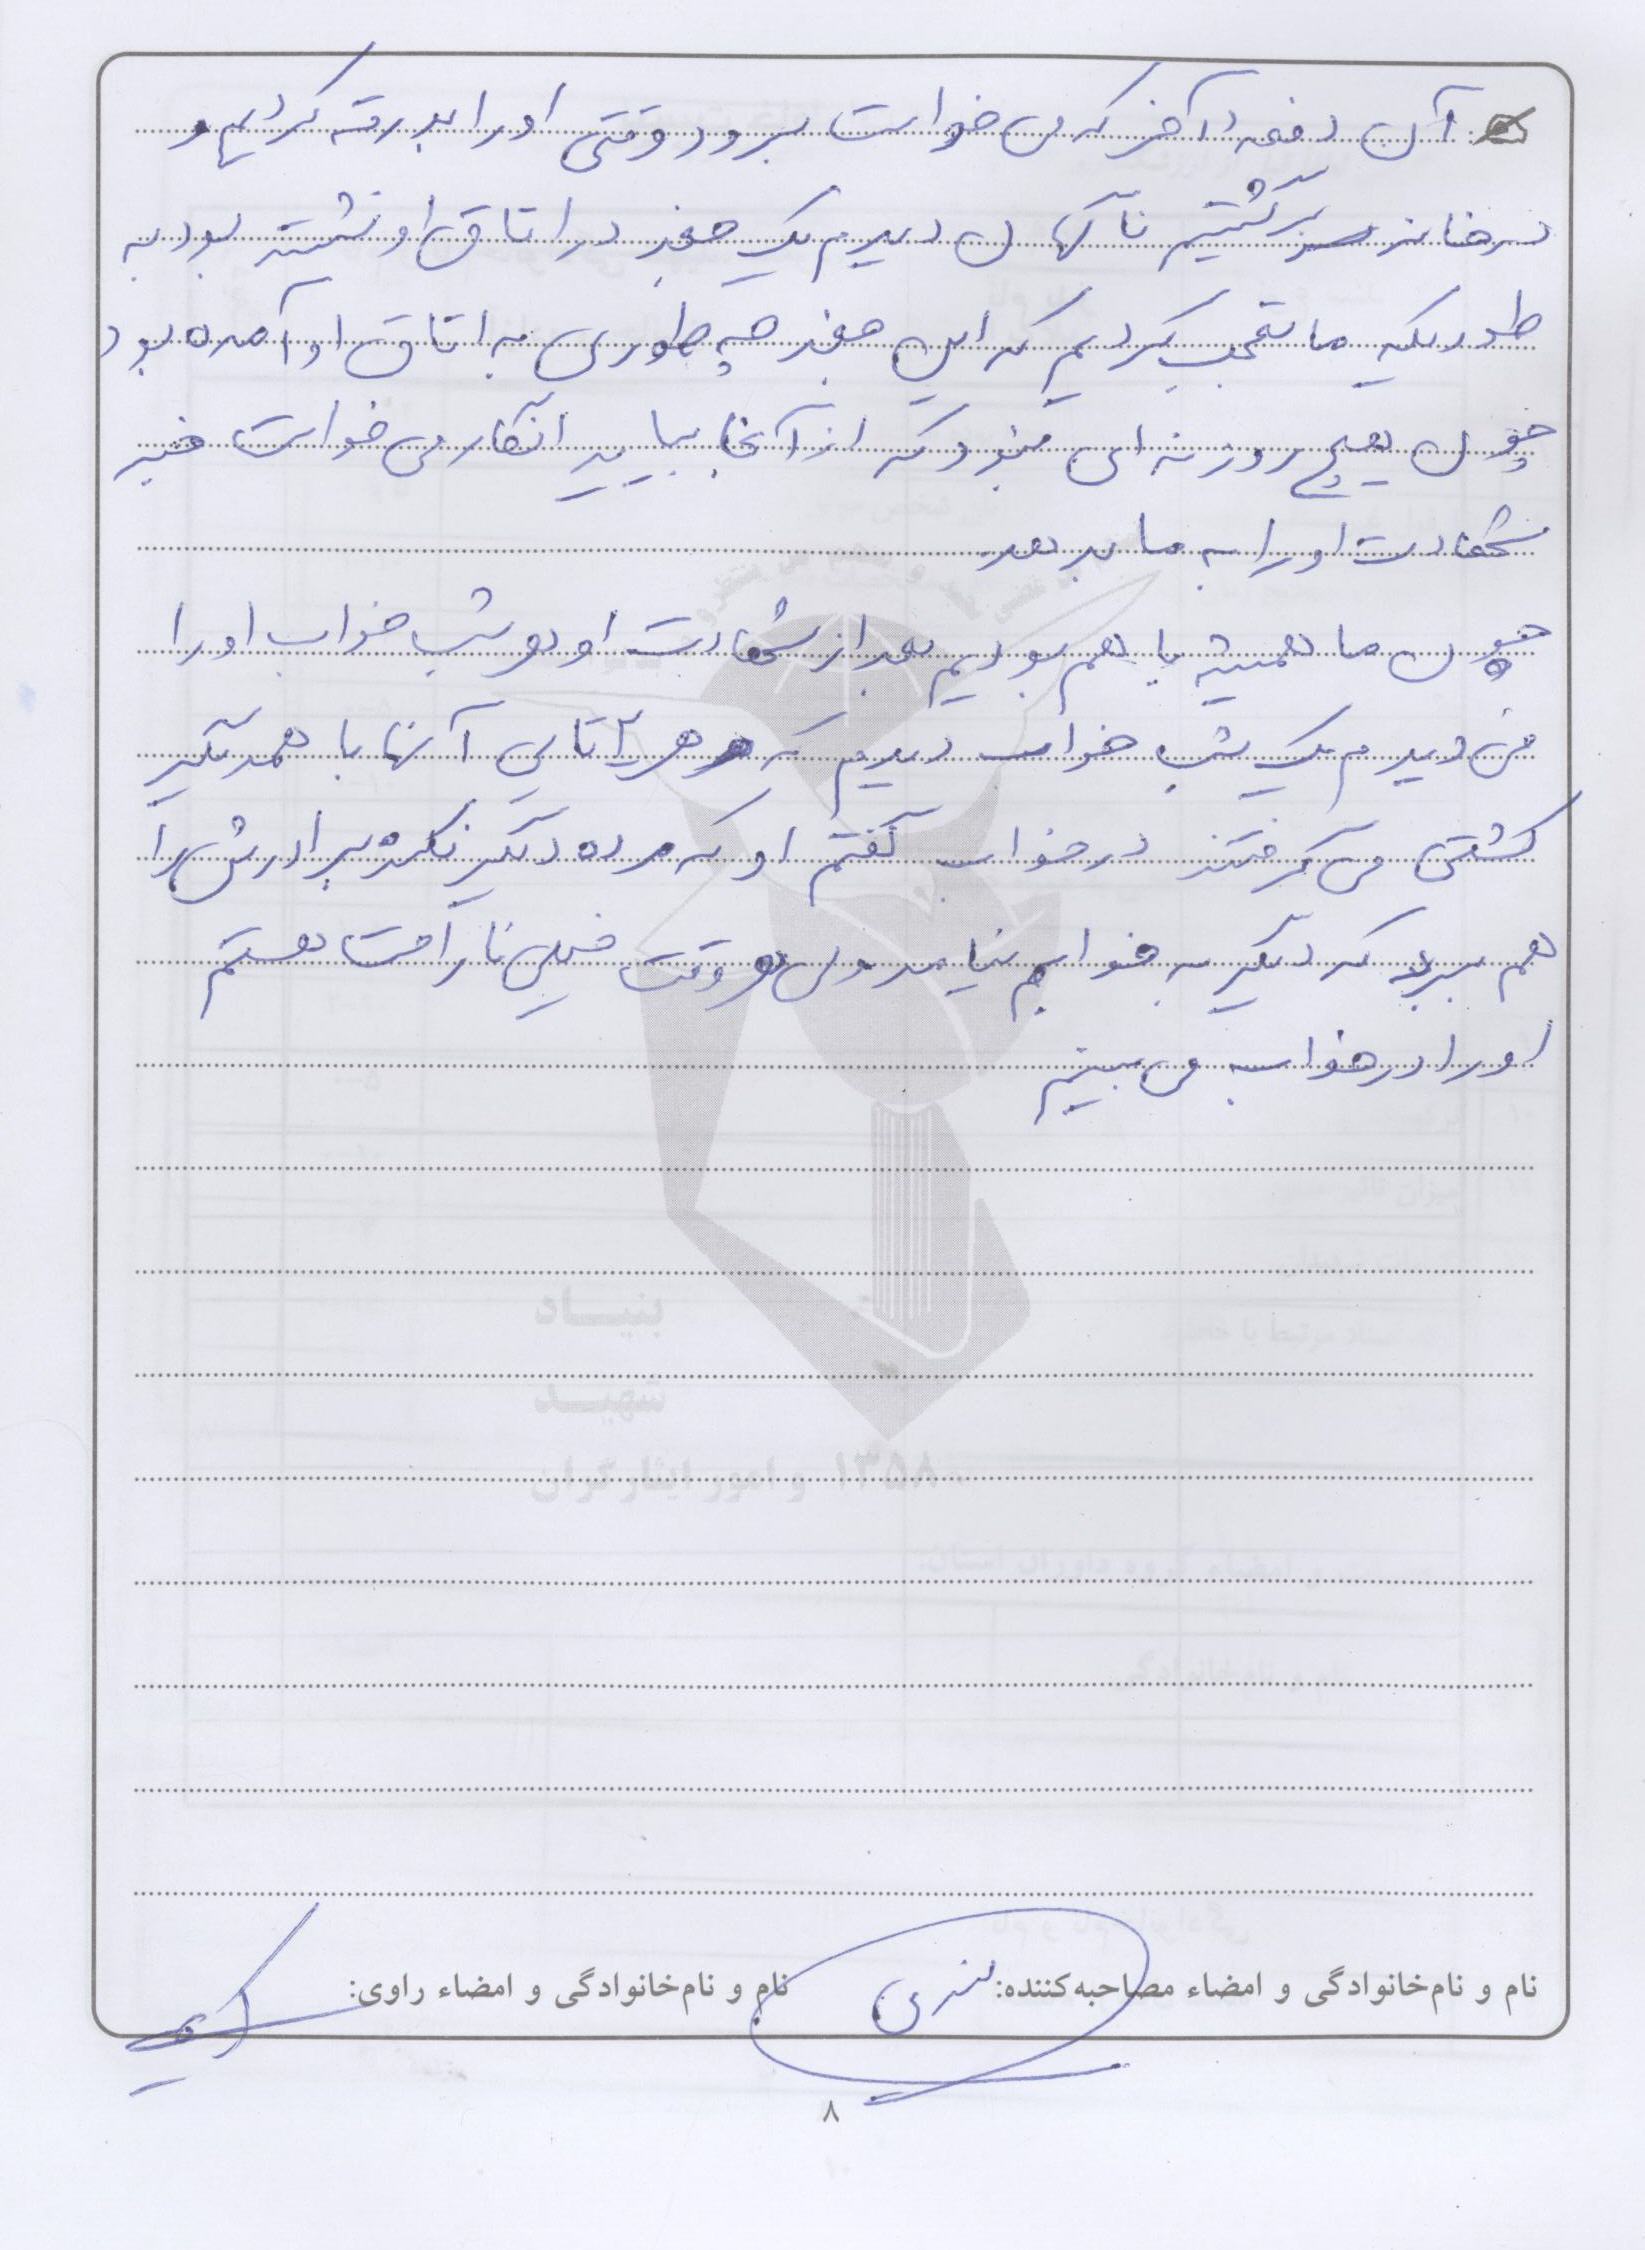 آن دفعه آخر که می خواست برود وقتی او را بدرقه کردیم و
به خانه برگشتیم ناگهان دیدیم یک جغد در اتاق او نشسته بود به
طوریکه ما تعجب کردیم که این جغد چه طوری به اتاق او آمده بود
چون هیچ روزنه ای نبود که از آنجا بیاید انگار می خواست خبر
شهادت او را به ما بدهد.
چون ما همیشه با هم بودیم بعد از شهادت او هر شب خواب او را
می دیدم یک شب خواب دیدم که هر ۲ تای آنها با همدیگر
کشتی می گرفتند در خواب گفتم او که مرده دیگر نکنه برادرش را
هم ببرد که دیگر به خوابم نیامد ولی هر وقت خیلی ناراحت هستم
او را در خواب می بینم
بنیاد
شهید
۱۳۵۸ و امور ایثارگران
نام و نام‌خانوادگی و امضاء مصاحبه‌کننده: نام و نام‌خانوادگی و امضاء راوی:
۸